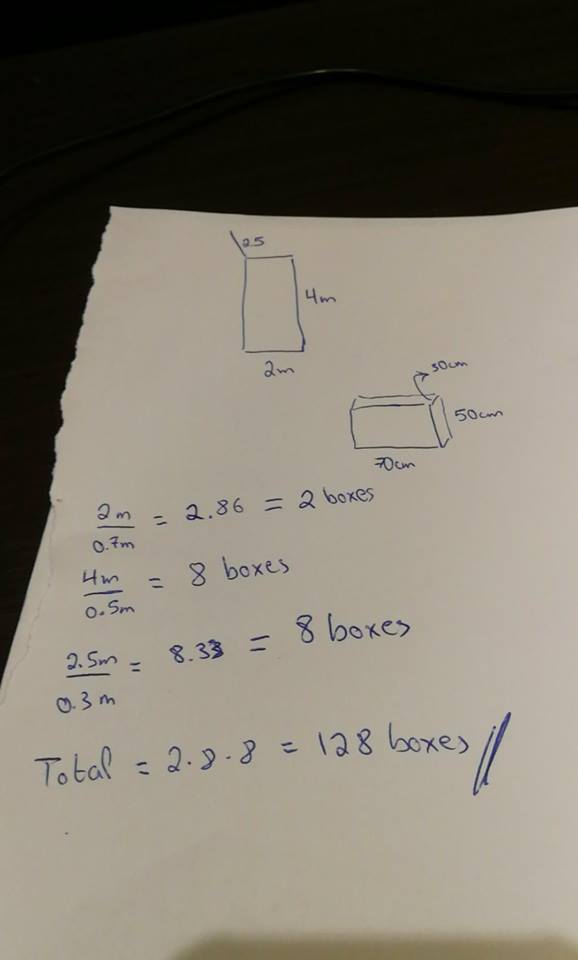 25
4m
2m
30cm
50cm
70cm
2m/0.7m = 2.86 = 2 boxes
4m/0.5m = 8 boxes
2.5m/0.3m = 8.33 = 8 boxes
Total = 2.8.8 = 128 boxes //